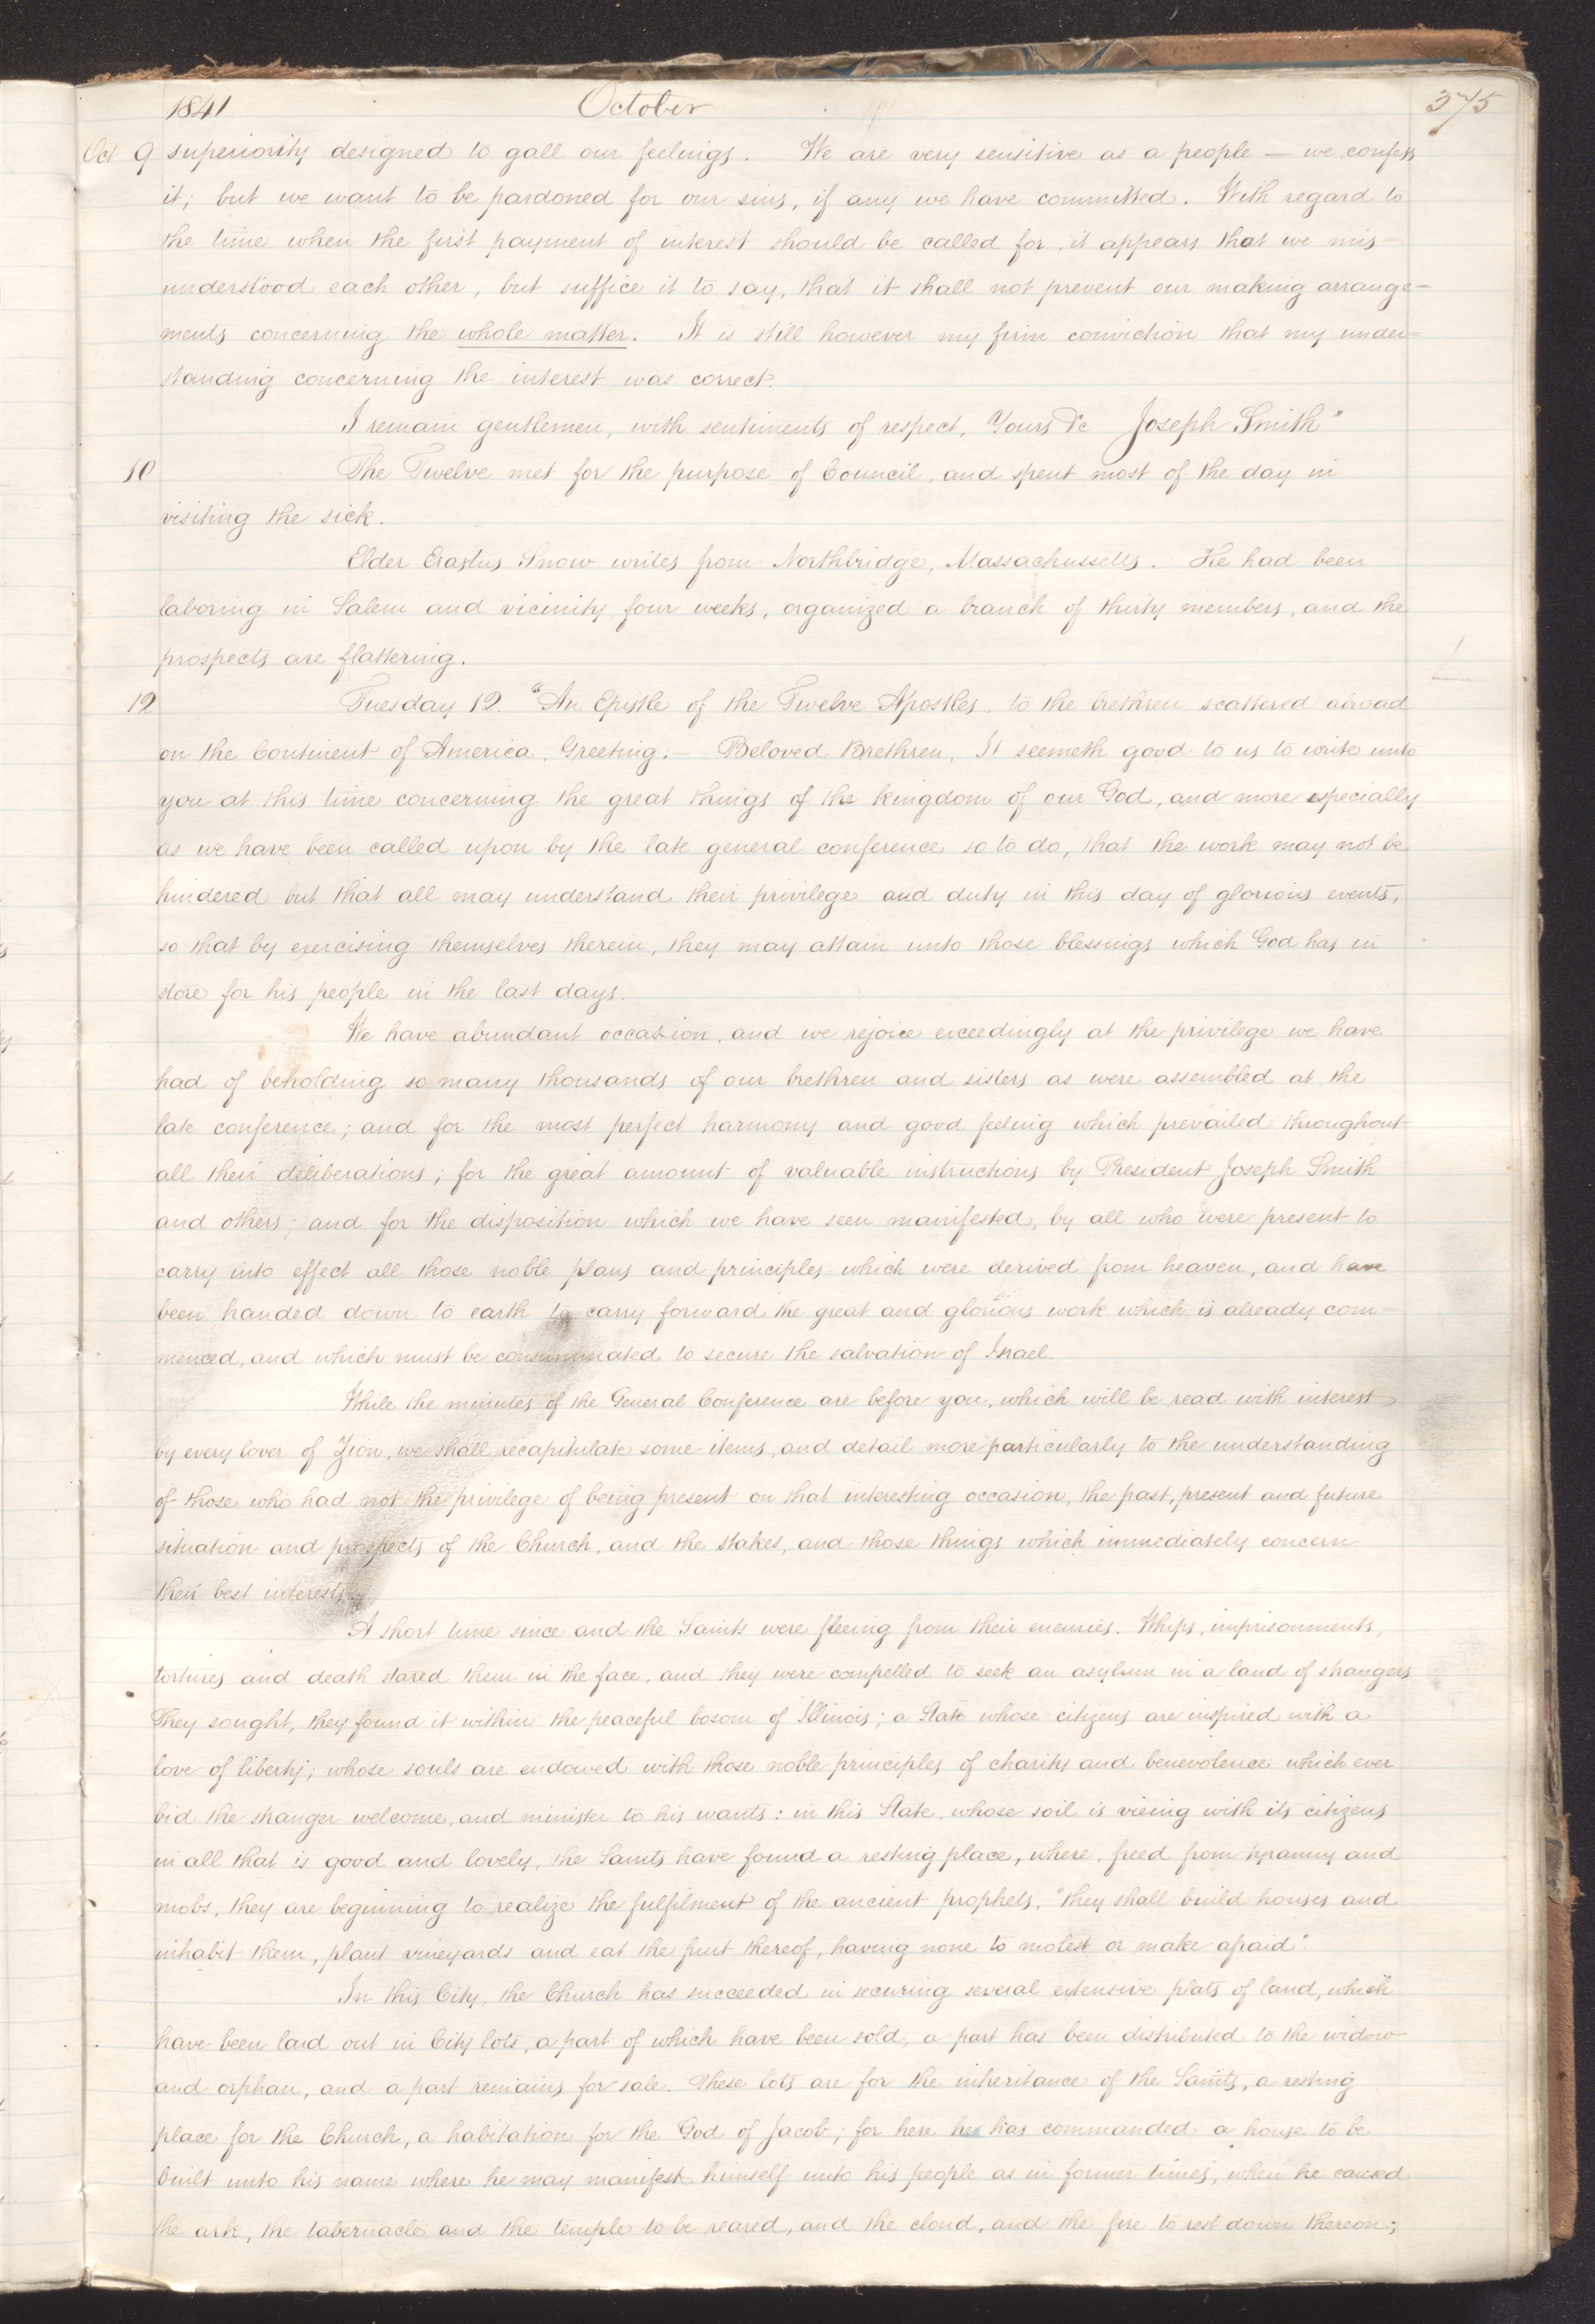 1841 October 375
Oct 9 superiority designed to gall our feelings. We are very sensitive as a people — we confess
it; but we want to be pardoned for our sins, if any we have committed. With regard to
the time when the first payment of interest should be called for, it appears that we mis=
understood each other, but suffice it to say, that it shall not prevent our making arrange=
ments concerning the whole matter. It is still however my firm conviction that my under=
standing concerning the interest was correct.
I remain gentlemen, with sentiments of respect, Yours &c Joseph Smith"
10 The Twelve met for the purpose of Council, and spent most of the day in
visiting the sick.
Elder Erastus Snow writes from Northbridge, Massachussetts. He had been
laboring in Salem and vicinity four weeks, organized a branch of thirty members, and the
prospects are flattering.
12 Tuesday 12. "An Epistle of the Twelve Apostles, to the brethren scattered abroad
on the Continent of America, Greeting:— Beloved Brethren, It seemeth good to us to write unto
you at this time concerning the great things of the kingdom of our God, and more especially
as we have been called upon by the late general conference so to do, that the work may not be
hindered but that all may understand their privilege and duty in this day of glorious events,
so that by exercising themselves therein, they may attain unto those blessings which God has in
store for his people in the last days.
We have abundant occasion, and we rejoice exceedingly at the privilege we have
had of beholding so many thousands of our brethren and sisters as were assembled at the
late conference; and for the most perfect harmony and good feeling which prevailed throughout
all their deliberations; for the great amount of valuable instructions by President Joseph Smith
and others; and for the disposition which we have seen manifested, by all who were present to
carry into effect all those noble plans and principles which were derived from heaven, and have
been handed down to earth to carry forward the great and glorious work which is already com=
menced, and which must be consummated to secure the salvation of Israel.
While the minutes of the General Conference are before you, which will be read with interest
by every lover of Zion, we shall recapitulate some items, and detail more particularly to the understanding
of those who had not the privilege of being present on that interesting occasion, the past, present and future
situation and prospects of the Church, and the stakes, and those things which immediately concern
their best interests.
A short time since and the Saints were fleeing from their enemies. Whips, imprisonments,
tortures and death stared them in the face, and they were compelled to seek an asylum in a land of strangers
They sought, they found it within the peaceful bosom of Illinois; a State whose citizens are inspired with a
love of liberty; whose souls are endowed with those noble principles of charity and benevolence which ever
bid the stranger welcome, and minister to his wants: in this State, whose soil is vieing with its citizens
in all that is good and lovely, the Saints have found a resting place, where, freed from tyranny and
mobs, they are beginning to realize the fulfilment of the ancient prophets, "they shall build houses and
inhabit them, plant vineyards and eat the fruit thereof, having none to molest or make afraid".
In this City, the Church has succeeded in securing several extensive plats of land, which
have been laid out in City lots, a part of which have been sold, a part has been distributed to the widow
and orphan, and a part remains for sale. These lots are for the inheritance of the Saints, a resting
place for the Church, a habitation for the God of Jacob; for here he has commanded a house to be
built unto his name where he may manifest himself unto his people as in former times, when he caused
the ark, the tabernacle and the temple to be reared, and the cloud, and the fire to rest down thereon;